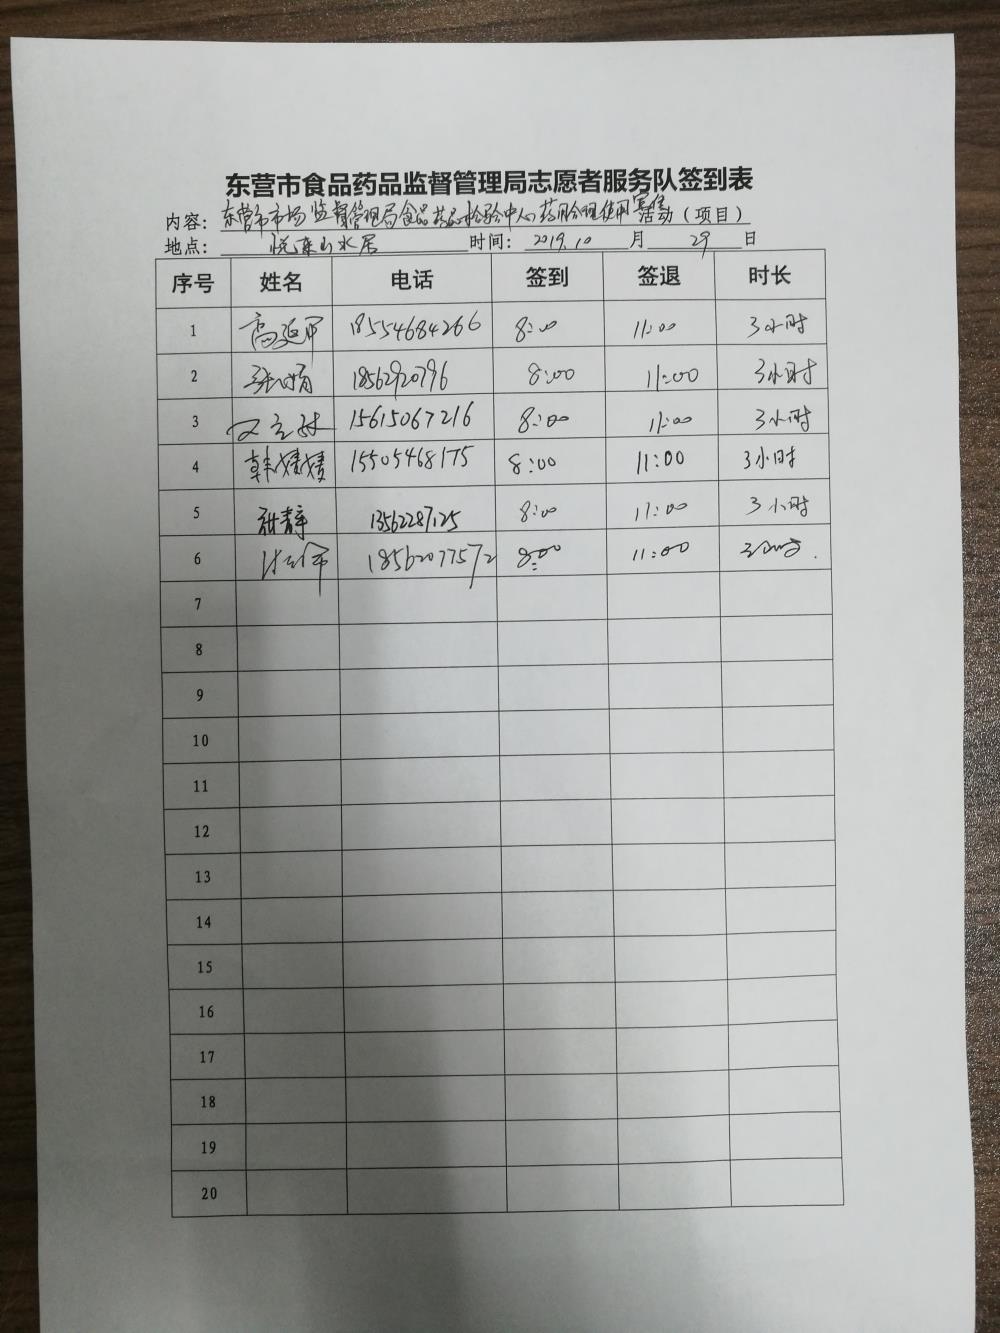 东营市食品药品监督管理局志愿者服务队签到表
内容：东营市市场监督管理局食品药品检验中心药品合理使用宣传活动（项目）
地点：悦来山水居 时间：2019.10 月 29 日
序号 姓名 电话 签到 签退 时长
1 高延军 18554684266 8:00 11:00 3小时
2 18562920796 8:00 11:00 3小时
3 15615067216 8:00 11:00 3小时
4 韩婧婧 15505468175 8:00 11:00 3小时
5 13562287125 8:00 11:00 3小时
6 18562077572 8:00 11:00 3小时.
7
8
9
10
11
12
13
14
15
16
17
18
19
20